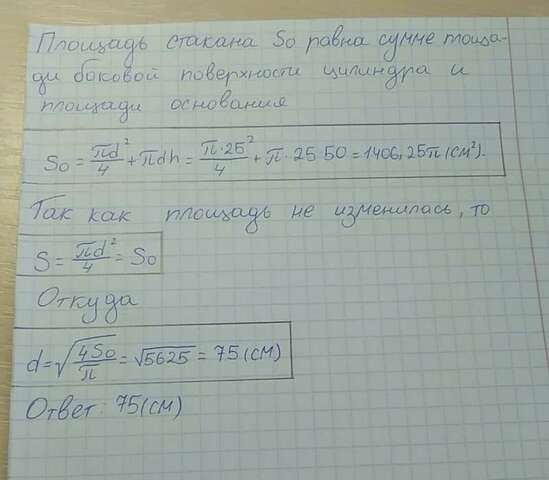 Площадь стакана S₀ равна сумме площа-
ди боковой поверхности цилиндра и
площади основания
S₀ = πd²/4 + πdh = π·25²/4 + π·25·50 = 1406,25π (см²).
Так как площадь не изменилась, то
S = πd²/4 = S₀
Откуда
d = √(4S₀/π) = √5625 = 75 (см)
Ответ: 75 (см)